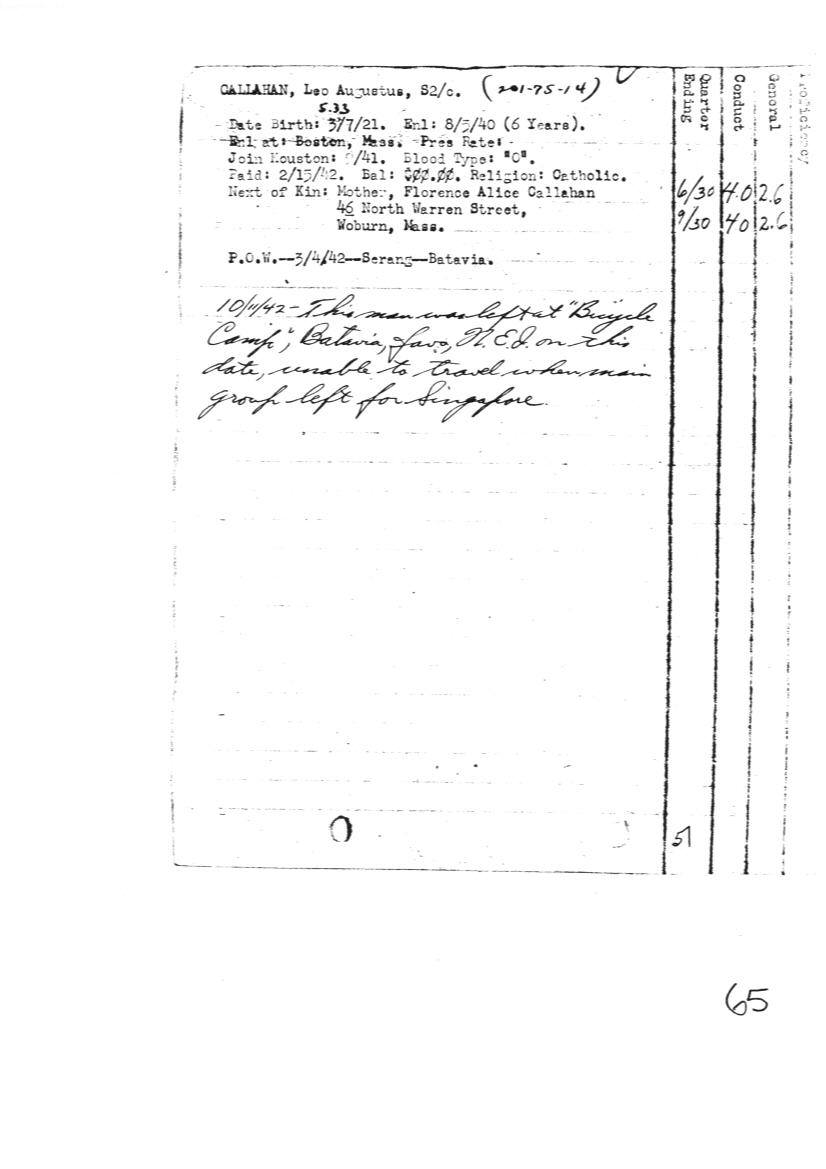 CALLAHAN, Leo Augustus, S2/c. (201-75-14)
5.33
Date Birth: 3/7/21. Enl: 8/5/40 (6 Years).
Enl; at: Boston, Mass. Pres Rate:
Join Houston: /41. Blood Type: "O".
Paid: 2/15/42. Bal: $00.00. Religion: Catholic.
Next of Kin: Mother, Florence Alice Callahan
46 North Warren Street,
Woburn, Mass.
P.O.W.--3/4/42--Serang--Batavia.
10/11/42 - This man was left at "Bicycle
Camp", Batavia, Java, N.E.I. on this
date, unable to travel when main
group left for Singapore.
Quarter Ending
Conduct
General
Proficiency
6/30 4.0 2.6
9/30 40 2.6
51
65